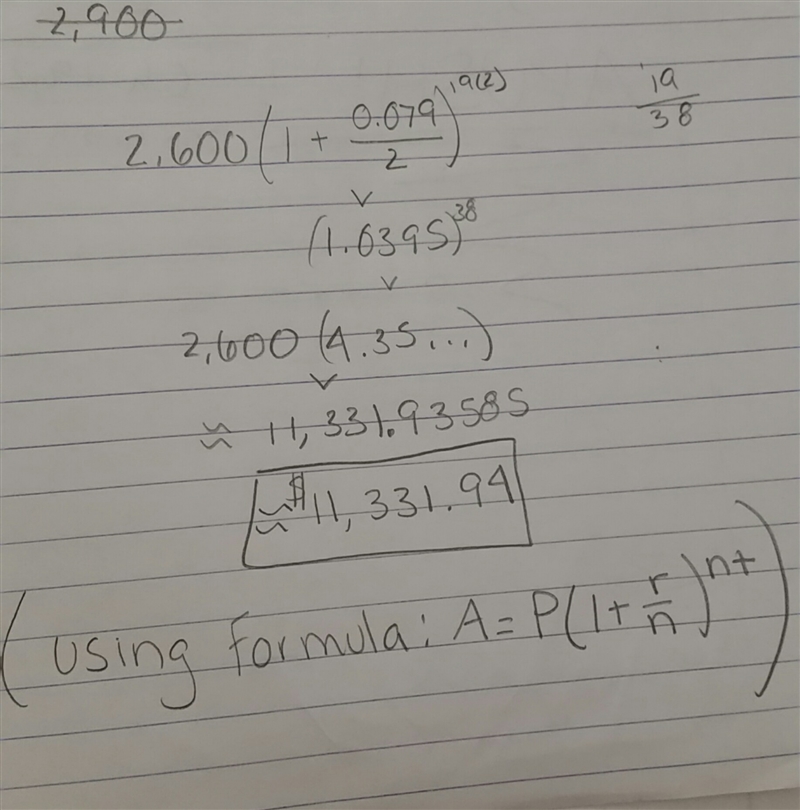 2,900
2,600(1 + 0.079/2)^19(2)
19/38
(1.0395)^38
2,600 (4.35...)
≈ 11,331.93585
≈ $11,331.94
(using formula: A = P(1 + r/n)^nt)